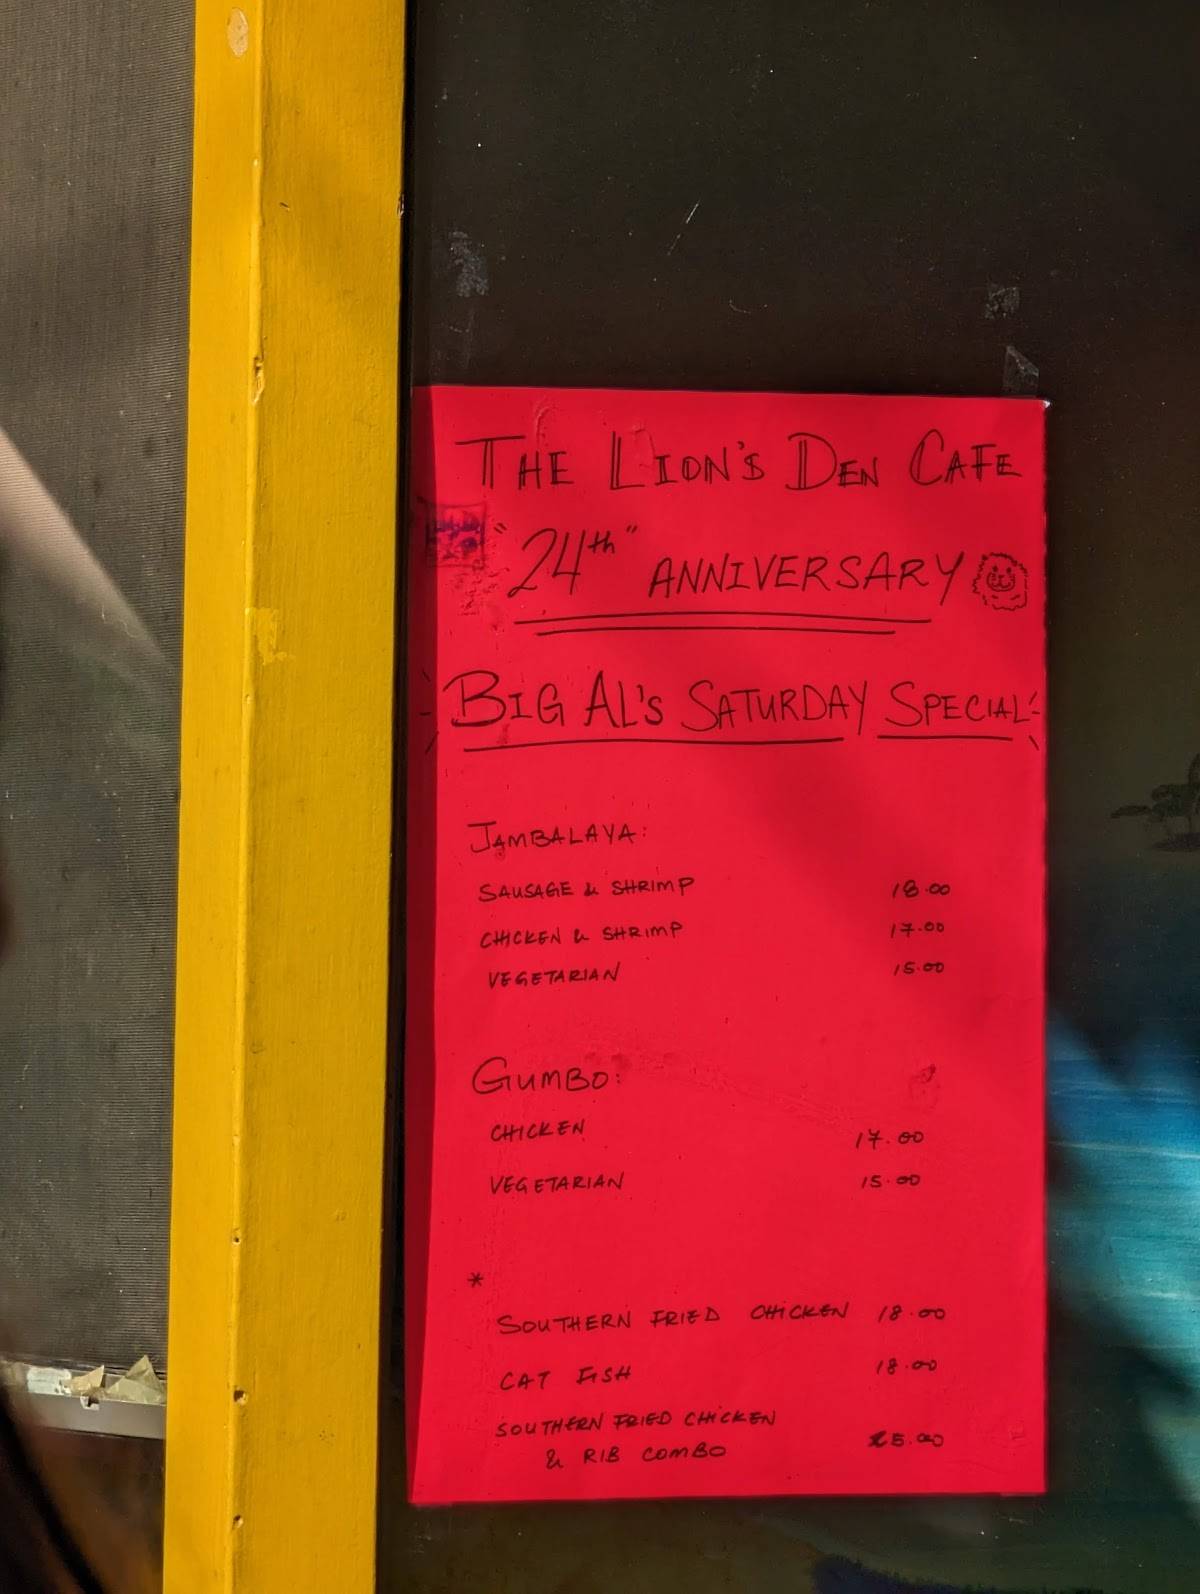 THE LION'S DEN CAFE
"24th" ANNIVERSARY
BIG AL'S SATURDAY SPECIAL
JAMBALAYA:
SAUSAGE & SHRIMP 18.00
CHICKEN & SHRIMP 17.00
VEGETARIAN 15.00
GUMBO:
CHICKEN 17.00
VEGETARIAN 15.00
*
SOUTHERN FRIED CHICKEN 18.00
CAT FISH 18.00
SOUTHERN FRIED CHICKEN
& RIB COMBO 25.00